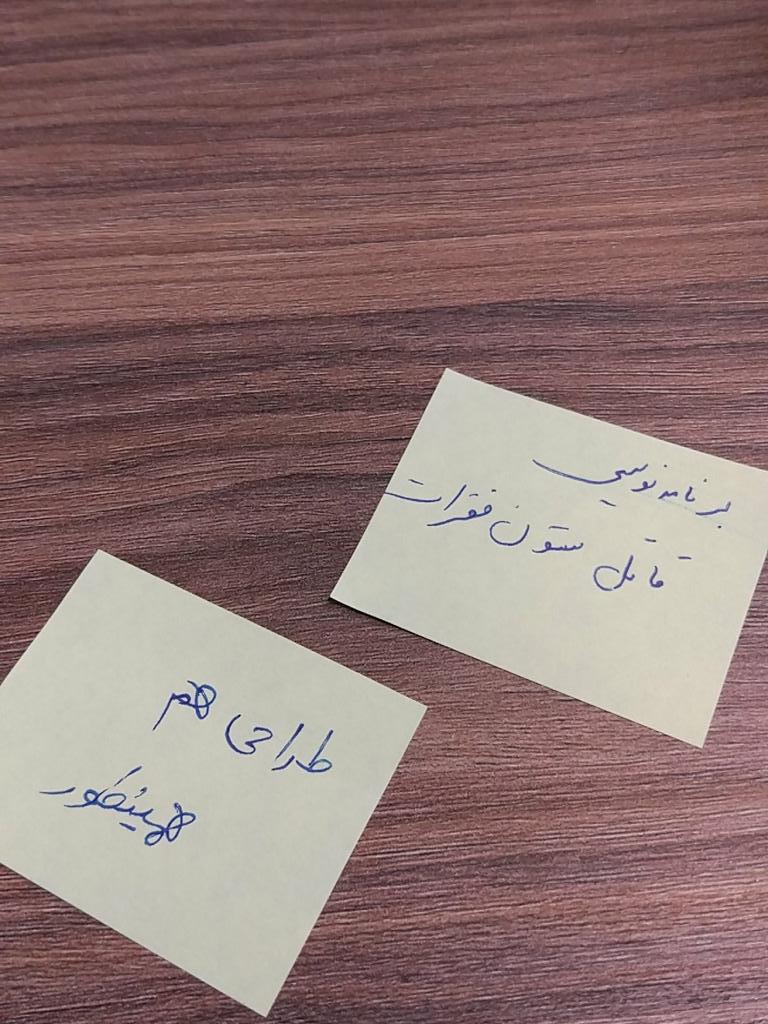 برنامه نویسی
قاتل ستون فقرات
طراحی هم
همینطور